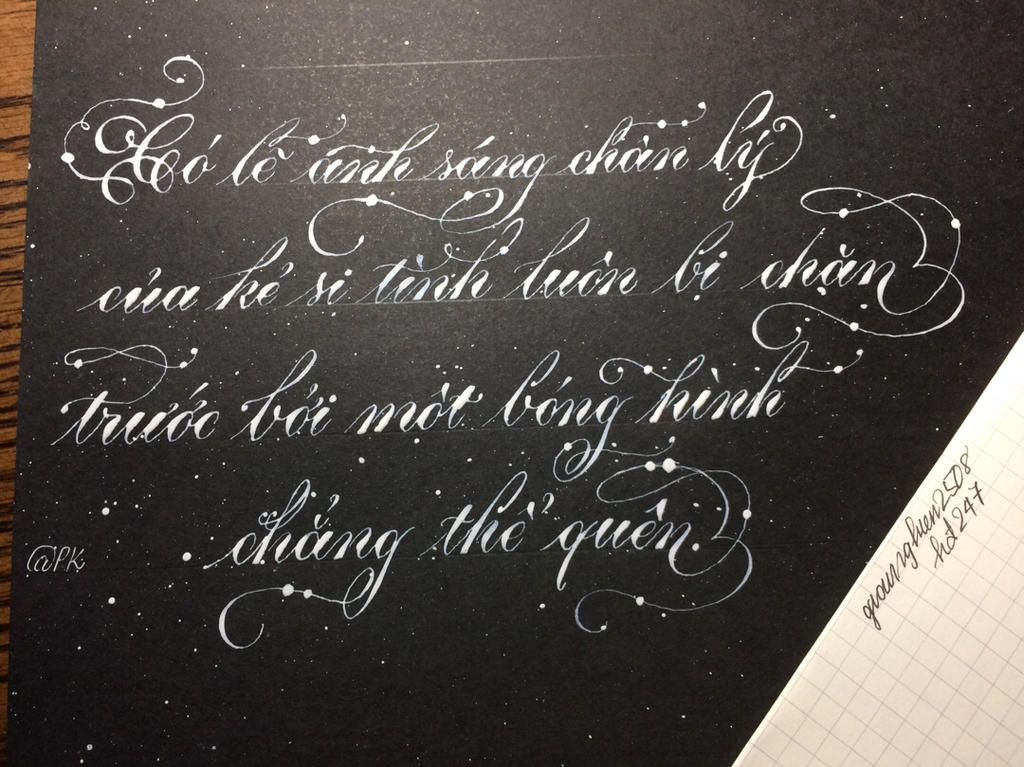 Có lẽ ánh sáng chân lý
của kẻ si tình luôn bị chặn
trước bởi một bóng hình
chẳng thể quên.
@PK
hd247